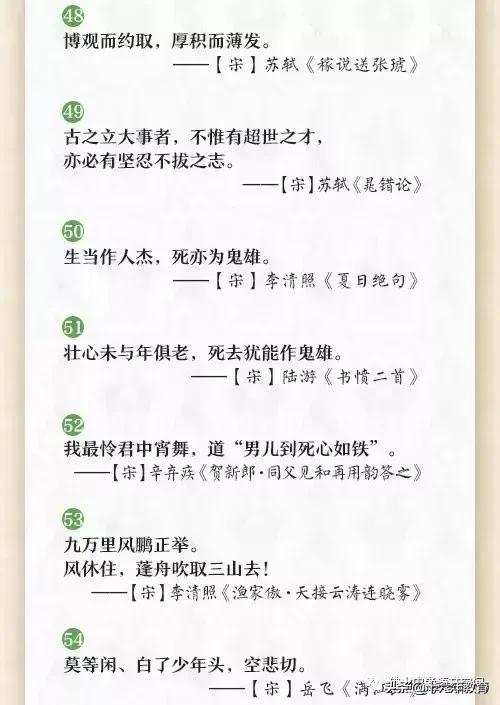 48
博观而约取，厚积而薄发。
——【 宋 】 苏轼《稼说送张琥》
49
古之立大事者，不惟有超世之才，
亦必有坚忍不拔之志。
——【宋】苏轼《晁错论》
50
生当作人杰，死亦为鬼雄。
——【 宋 】 李清照《 夏日绝句 》
51
壮心未与年俱老，死去犹能作鬼雄。
——【 宋 】 陆游《 书愤二首 》
52
我最怜君中宵舞，道“男儿到死心如铁”。
——【宋】辛弃疾《贺新郎·同父见和再用韵答之》
53
九万里风鹏正举。
风休住，蓬舟吹取三山去！
——【宋】李清照《渔家傲·天接云涛连晓雾》
54
莫等闲、白了少年头，空悲切。
——【 宋 】 岳飞《 满